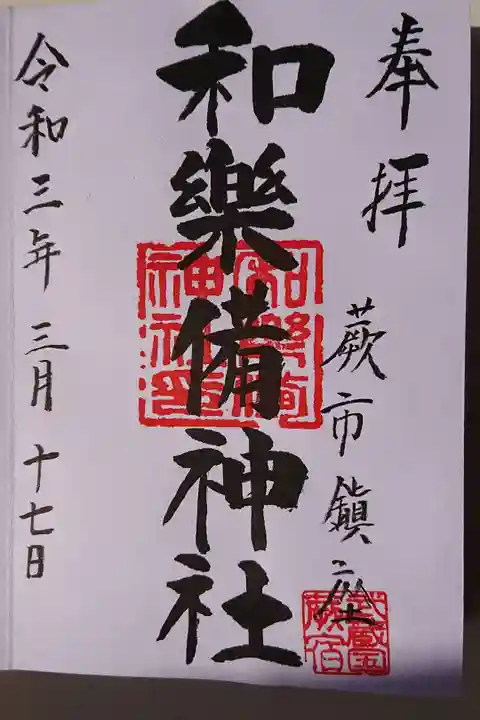 奉拝
蕨市鎮座
和樂備神社
令和三年三月十七日
和樂備
神社印
武蔵国
蕨宿